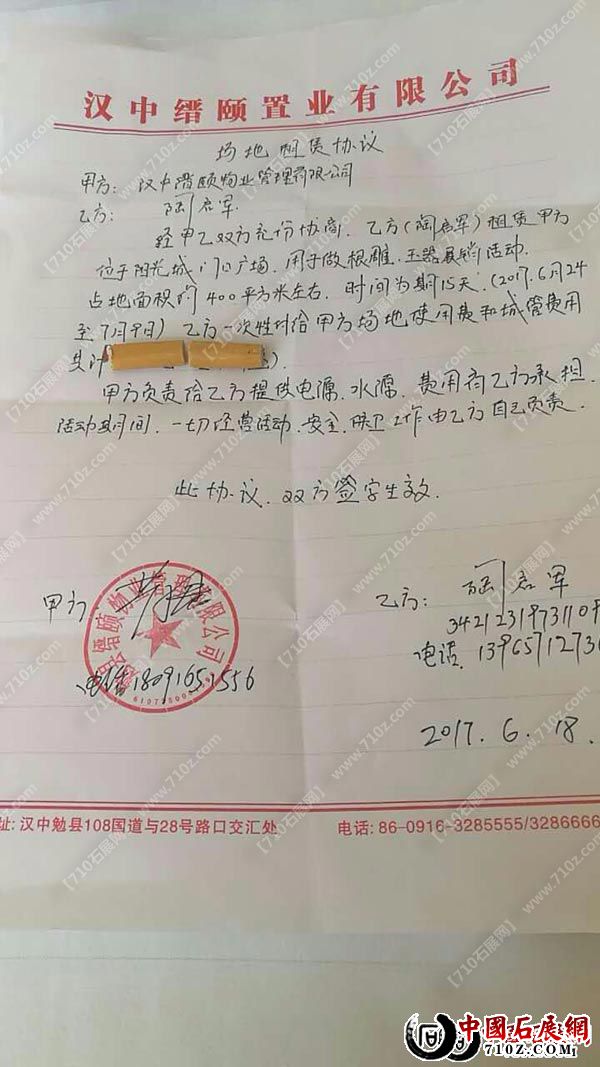 汉中缙颐置业有限公司
场地租赁协议
甲方：汉中缙颐物业管理有限公司
乙方：陶启军
经甲乙双方充份协商，乙方（陶启军）租赁甲方
位于阳光城门口广场，用于做根雕、玉器展销活动.
占地面积约400平方米左右，时间为期15天.（2017.6月24
至7月9日）乙方一次性付给甲方场地使用费和城管费用
共计
甲方负责给乙方提供电源、水源，费用有乙方承担.
活动期间，一切经营活动、安全、保卫工作由乙方自己负责.
此协议、双方签字生效.
甲方
缙颐物业管理有限公司
电话
乙方：陶启军
电话
2017.6.18
址：汉中勉县108国道与28号路口交汇处
电话：86-0916-3285555/3286666
【710石展网】 www.710z.com
中國石展網
710Z.COM